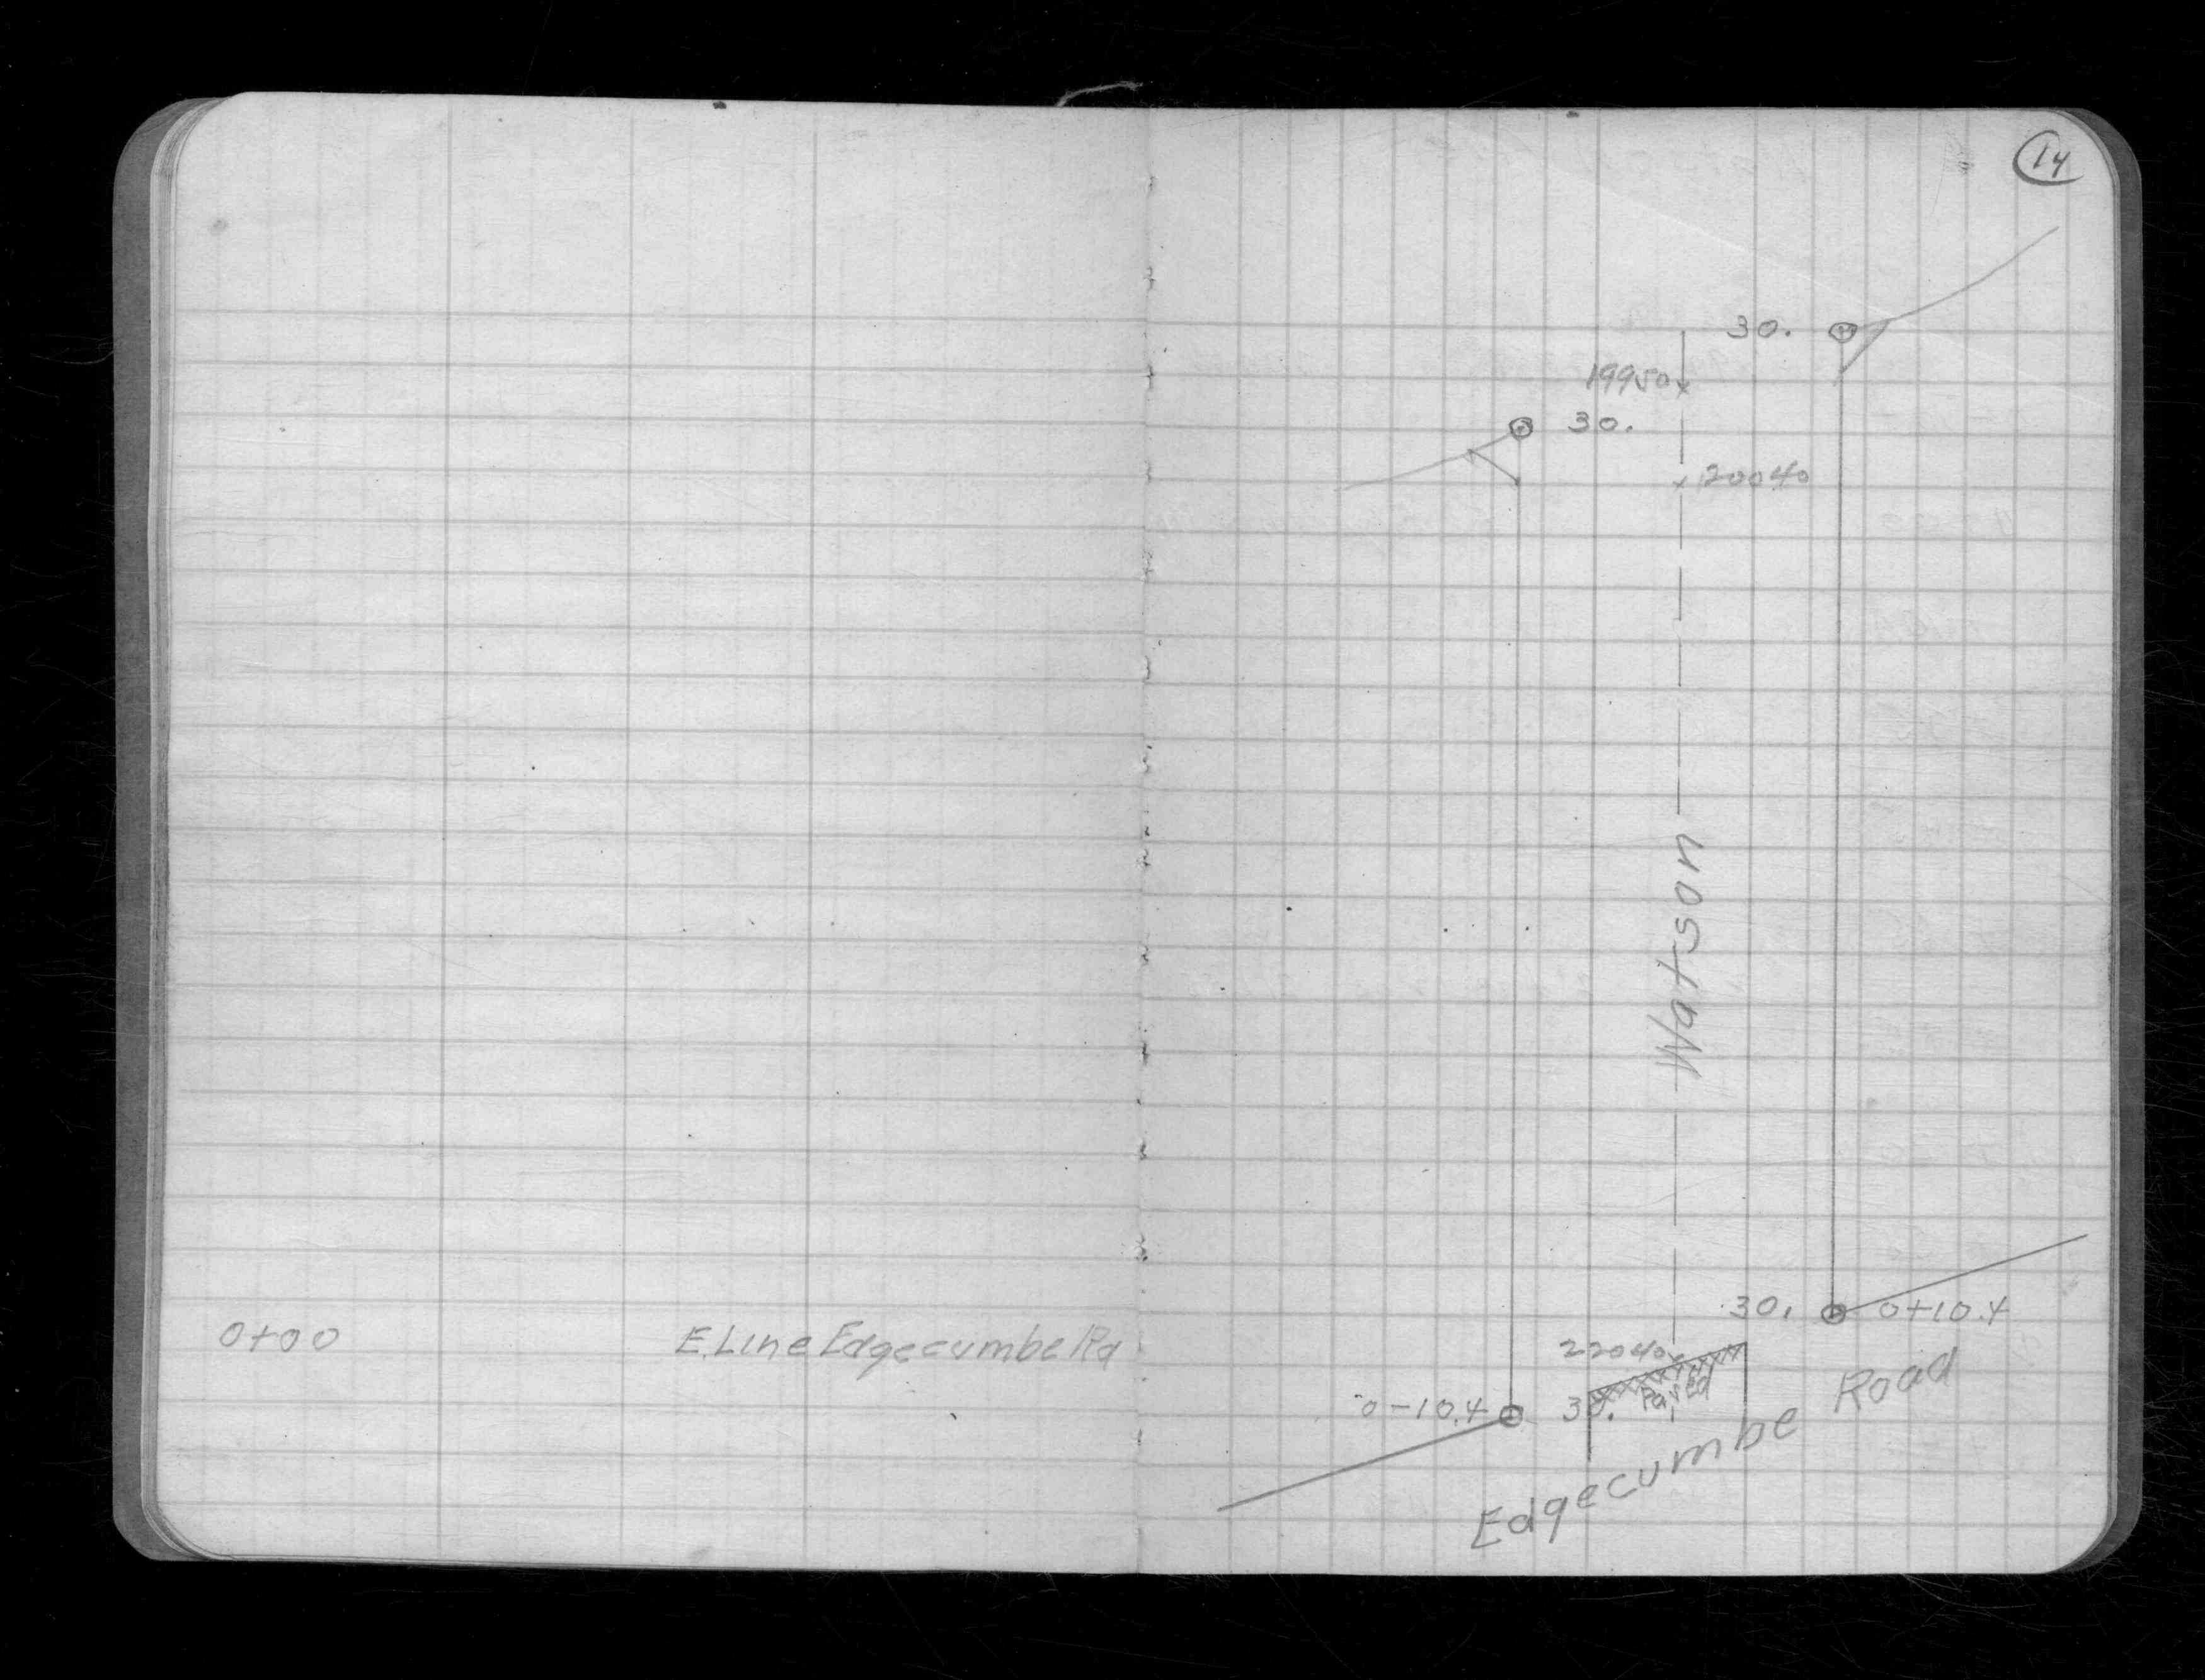 0+00 E. Line Edgecumbe Rd
14
30.
19950
30.
20040
Watson
30. 0+10.4
22040
Paved
0-10.4 30.
Edgecumbe Road